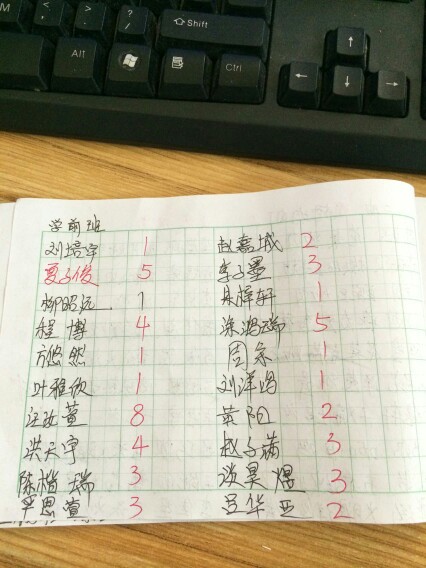 M < > ? / ⇧Shift ↑
ALT Ctrl ← ↓ →
学前班
刘培宇 1 赵嘉城 2
夏子俊 5 李子墨 3
柳昭远 1 梓轩 1
程博 4 涂鸿瑞 5
方悠然 1 周 1
叶雅欣 1 刘洋鸿 1
汪汝萱 8 黄阳 2
洪天宇 4 赵子萧 3
陈楷瑞 3 谈昊煜 3
思萱 3 吕华亚 2